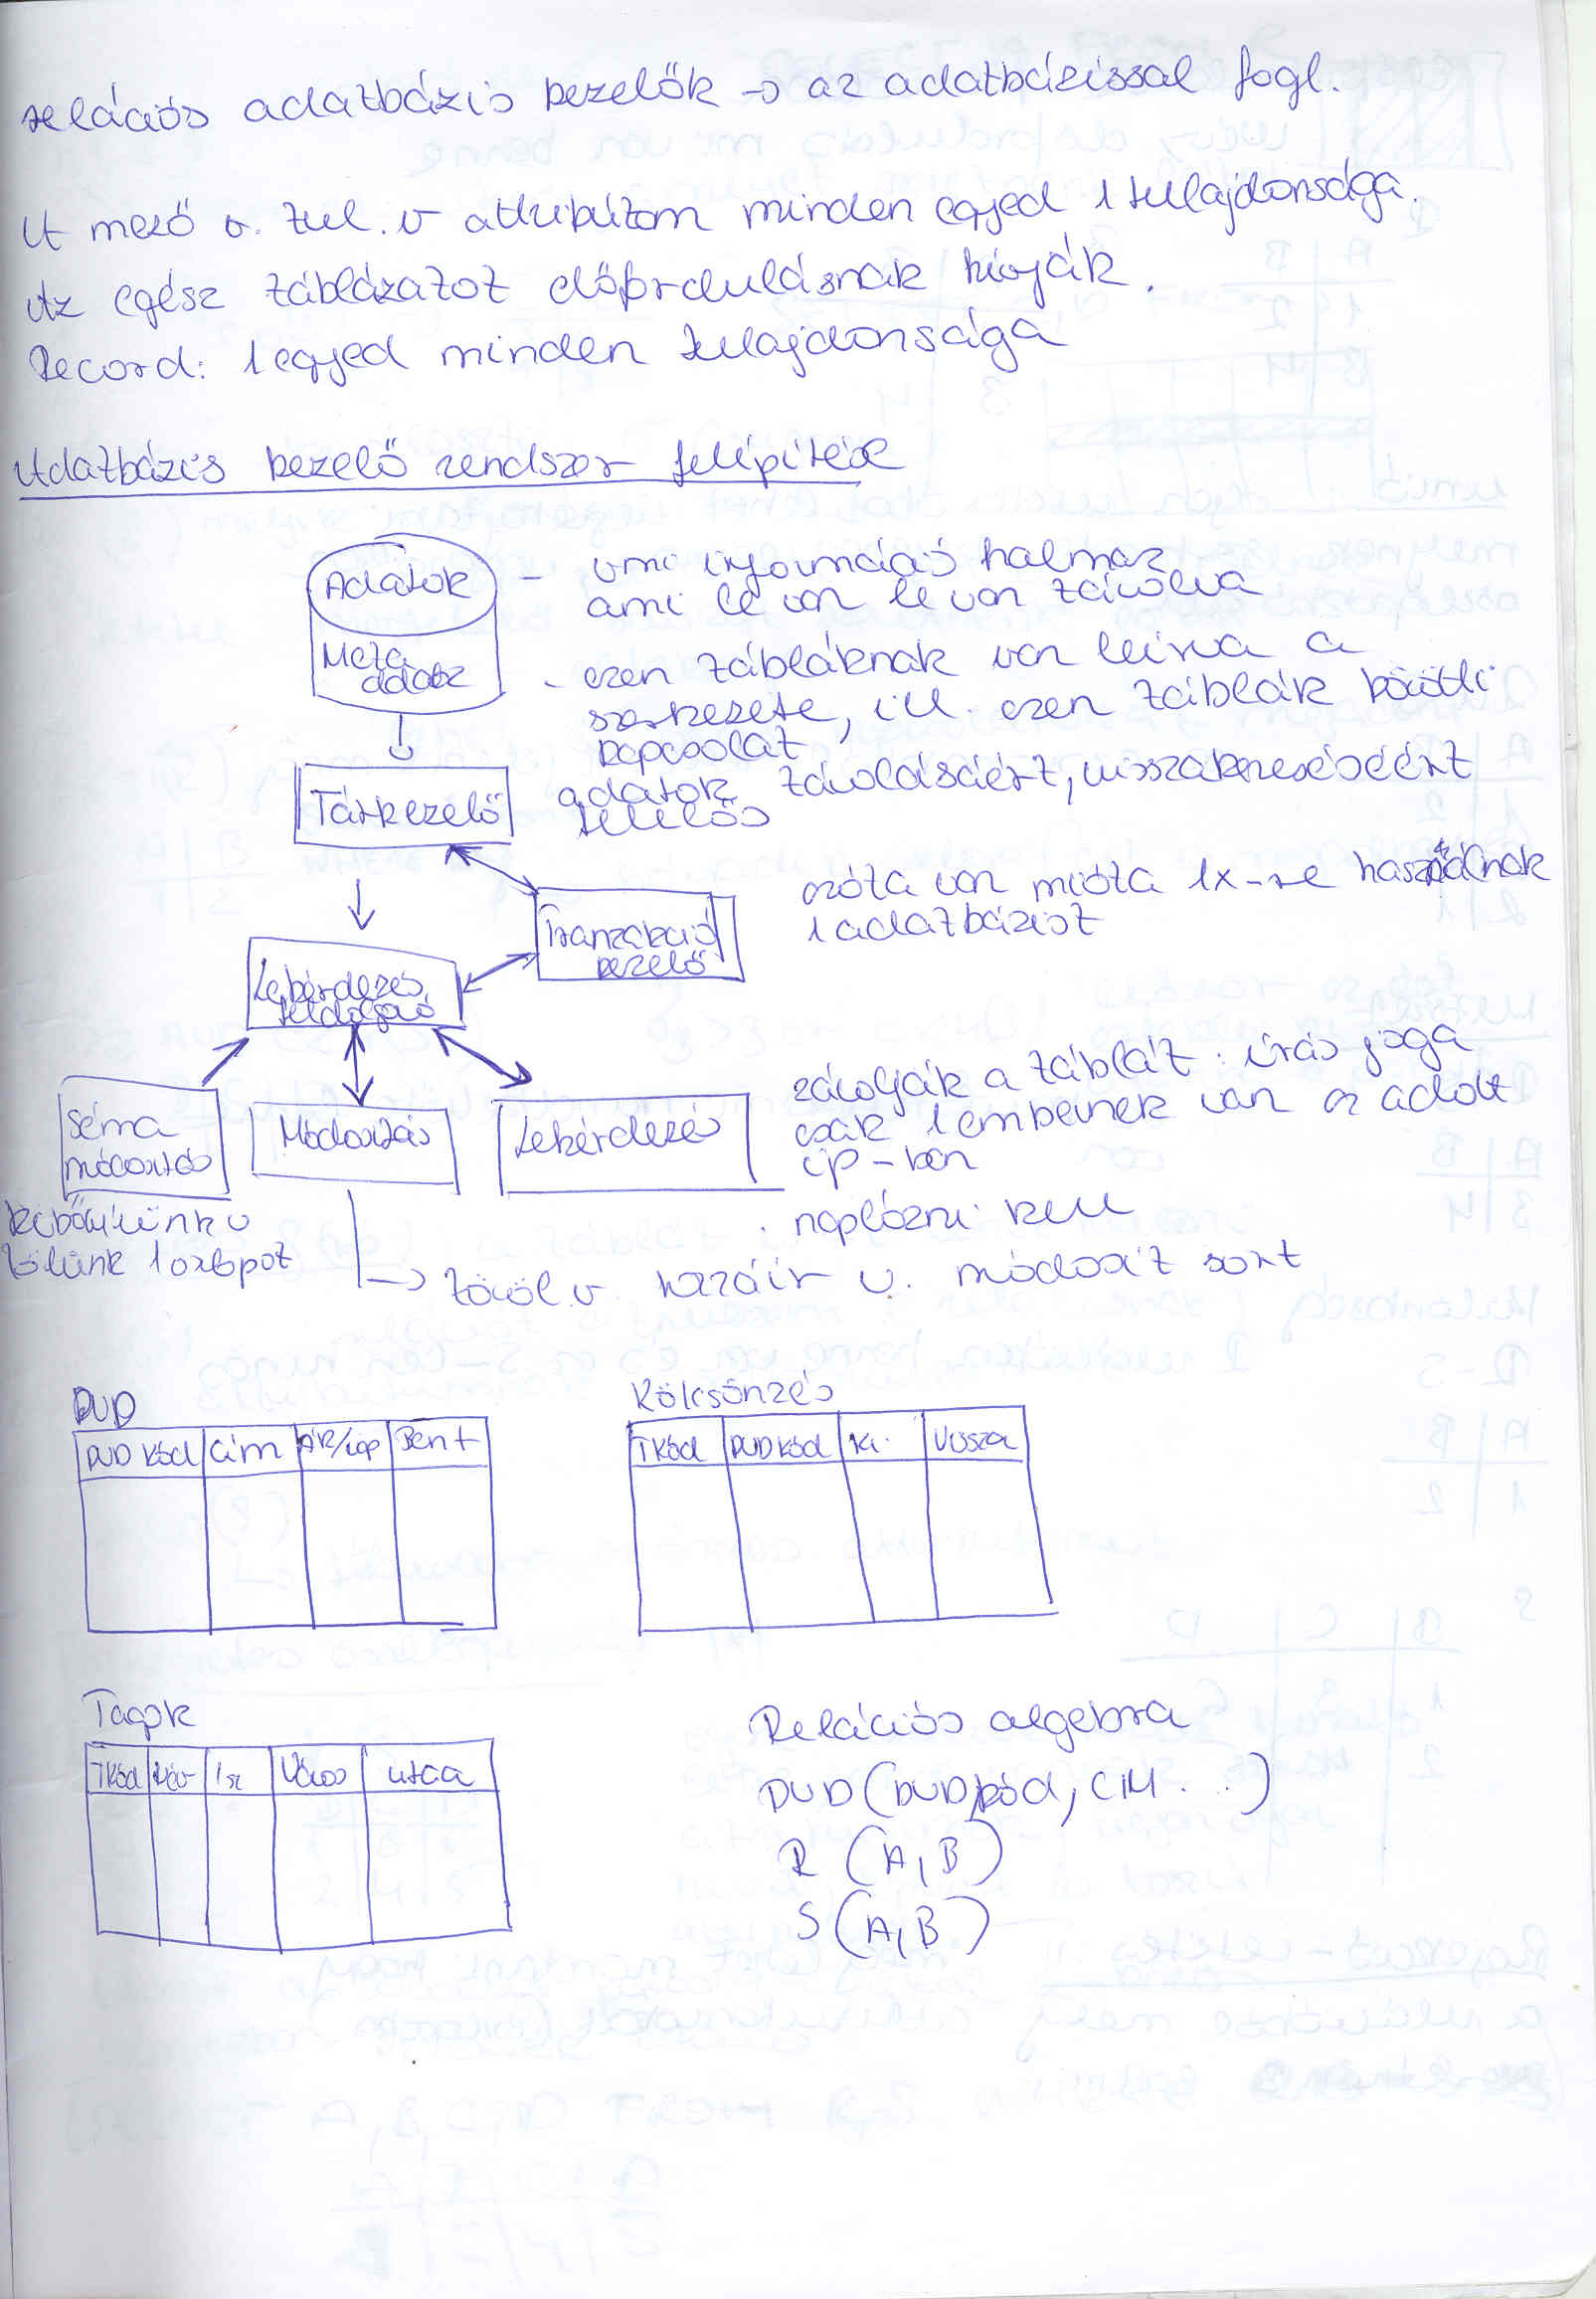 relációs adatbázis kezelők → az adatbázissal fogl.
A mező v. tul. v attribútom minden egyed 1 tulajdonsága.
Az egész táblázatot előfordulásnak hívják.
Record: 1 egyed minden tulajdonsága
Adatbázis kezelő rendszer felépítése
Adatok - vmi információ halmaz
ami le van le van tárolva
Meta
adatz
- ezen tábláknak van leírva a
szerkezete, ill. ezen táblák közötti
kapcsolat
Tárkezelő
adatok tárolásáért, visszakereséséért
felelős
azóta van mióta 1x-re használnak
1 adatbázist
Tranzakció
kezelő
Lekérdezés
feldolgozó
Séma
módosítás
Módosítás
Lekérdezés
zárolják a táblát : írás joga
csak 1 embernek van az adott
ip-ben
. naplózni kell
kibővítünk v
törlünk 1 oszlopot
→ töröl v. hozzáír v. módosít sort
DVD
DVD kód | Cím | Ár/nap | Bent
Kölcsönzés
TKód | DVD kód | Ki. | Vissza
Tagok
TKód | Név | Isz | Város | utca
Relációs algebra
DVD (DVDkód, CIM . . .)
R (A, B)
S (A, B)